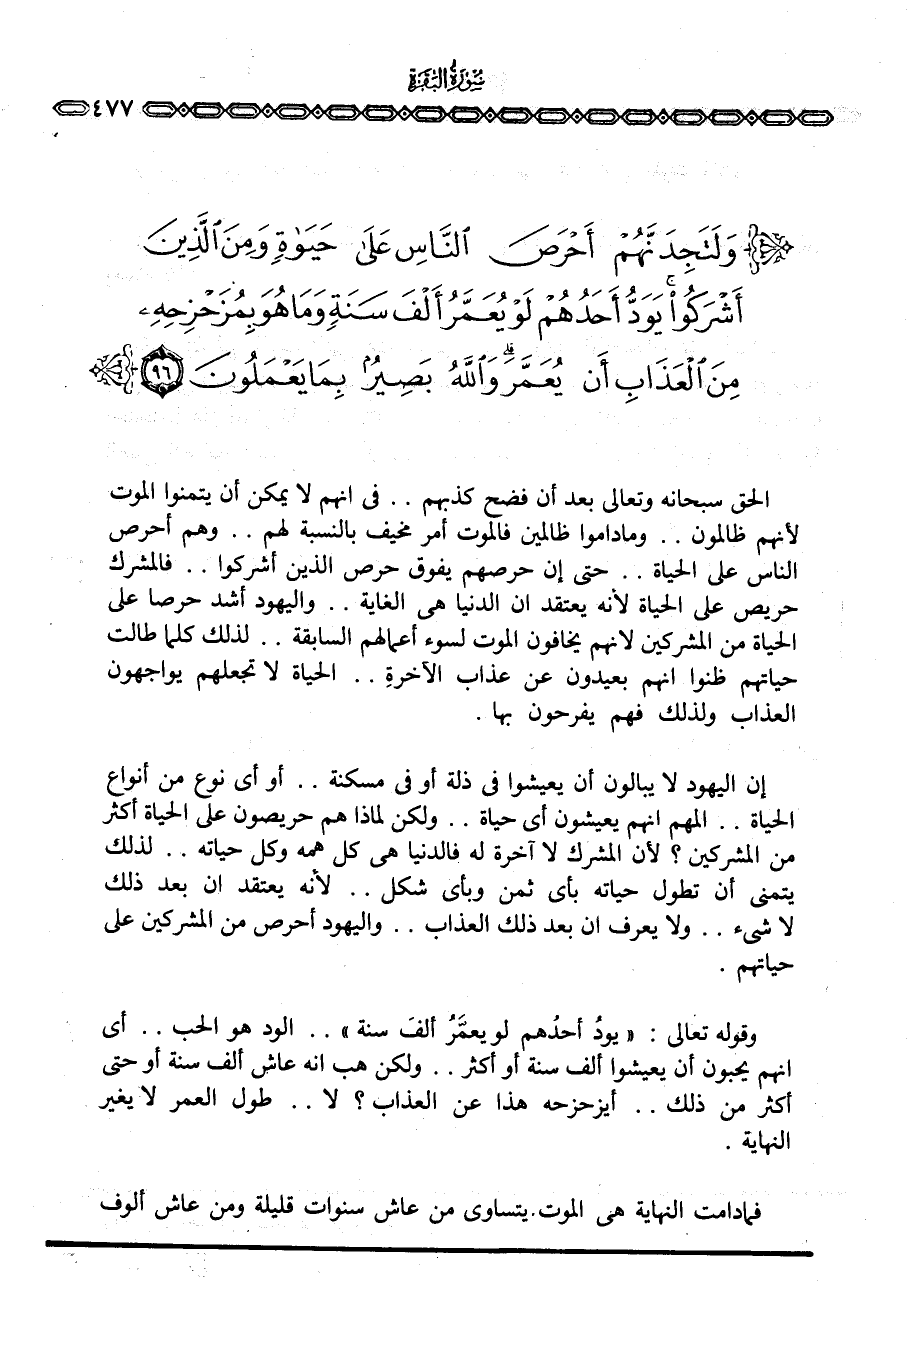 سُورَةُ البَقَرَة
٤٧٧
وَلَتَجِدَنَّهُمْ أَحْرَصَ ٱلنَّاسِ عَلَىٰ حَيَوٰةٍ وَمِنَ ٱلَّذِينَ
أَشْرَكُوا۟ ۚ يَوَدُّ أَحَدُهُمْ لَوْ يُعَمَّرُ أَلْفَ سَنَةٍ وَمَا هُوَ بِمُزَحْزِحِهِۦ
مِنَ ٱلْعَذَابِ أَن يُعَمَّرَ ۗ وَٱللَّهُ بَصِيرٌۢ بِمَا يَعْمَلُونَ ٩٦
الحق سبحانه وتعالى بعد أن فضح كذبهم . . فى انهم لا يمكن أن يتمنوا الموت
لأنهم ظالمون . . وماداموا ظالمين فالموت أمر مخيف بالنسبة لهم . . وهم أحرص
الناس على الحياة . . حتى إن حرصهم يفوق حرص الذين أشركوا . . فالمشرك
حريص على الحياة لأنه يعتقد ان الدنيا هى الغاية . . واليهود أشد حرصا على
الحياة من المشركين لانهم يخافون الموت لسوء أعمالهم السابقة . . لذلك كلما طالت
حياتهم ظنوا انهم بعيدون عن عذاب الآخرةِ . . الحياة لا تجعلهم يواجهون
العذاب ولذلك فهم يفرحون بها .
إن اليهود لا يبالون أن يعيشوا فى ذلة أو فى مسكنة . . أو أى نوع من أنواع
الحياة . . المهم انهم يعيشون أى حياة . . ولكن لماذا هم حريصون على الحياة أكثر
من المشركين ؟ لأن المشرك لا آخرة له فالدنيا هى كل همه وكل حياته . . لذلك
يتمنى أن تطول حياته بأى ثمن وبأى شكل . . لأنه يعتقد ان بعد ذلك
لا شىء . . ولا يعرف ان بعد ذلك العذاب . . واليهود أحرص من المشركين على
حياتهم .
وقوله تعالى : « يودُ أحدُهم لو يعمَّرُ ألفَ سنة » . . الود هو الحب . . أى
انهم يحبون أن يعيشوا ألف سنة أو أكثر . . ولكن هب انه عاش ألف سنة أو حتى
أكثر من ذلك . . أيزحزحه هذا عن العذاب ؟ لا . . طول العمر لا يغير
النهاية .
فمادامت النهاية هى الموت.يتساوى من عاش سنوات قليلة ومن عاش ألوف